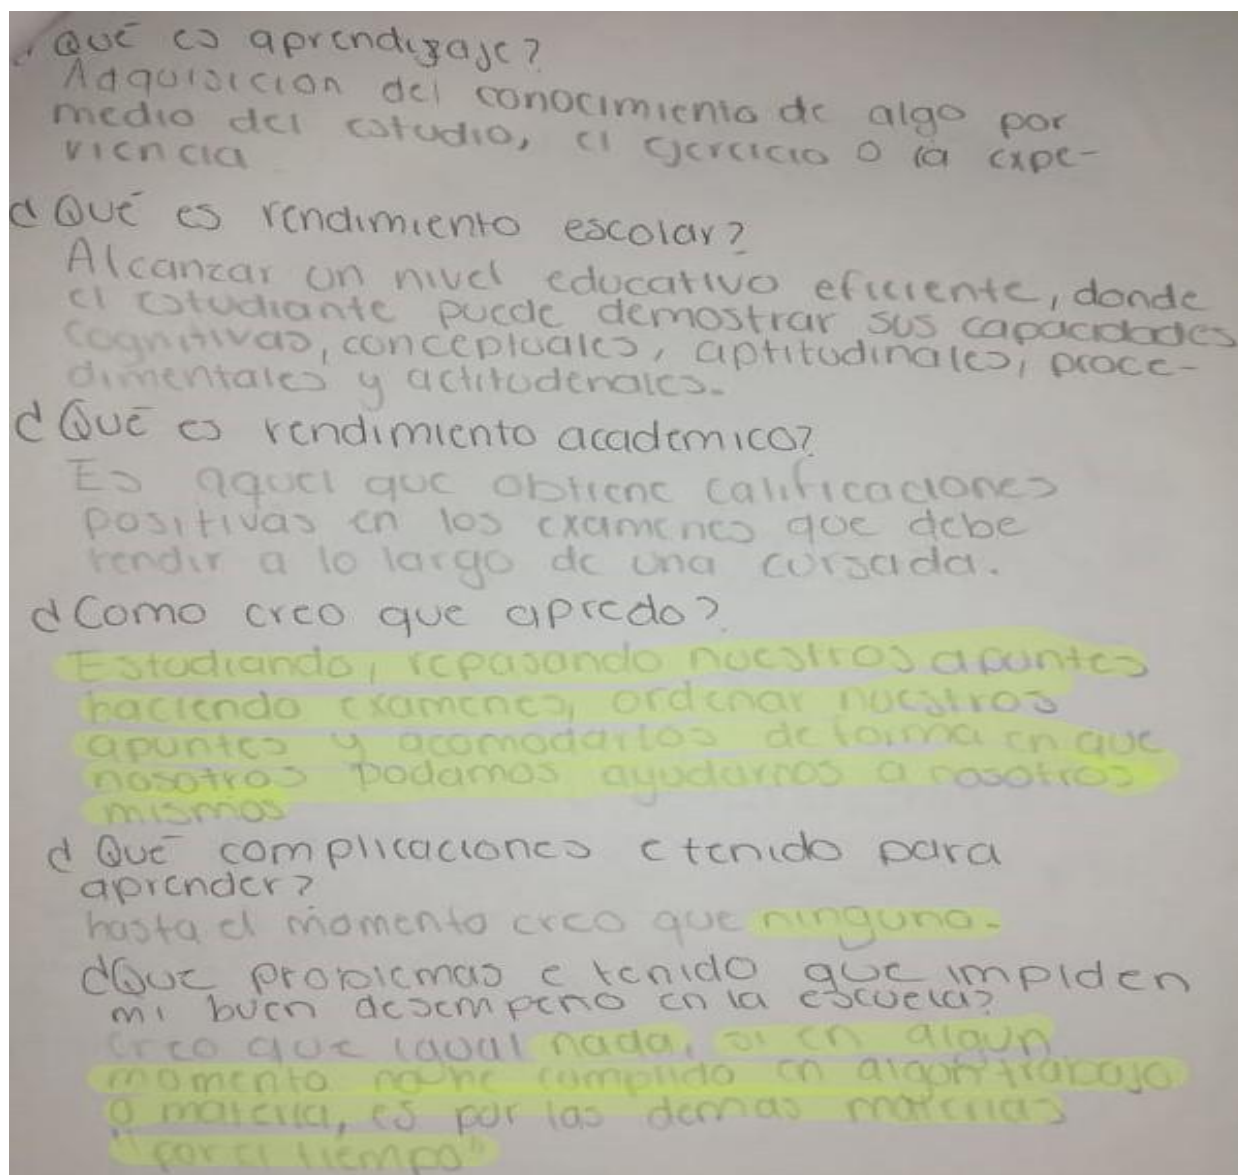 ¿Qué es aprendizaje?
Adquisicion del conocimiento de algo por
medio del estudio, el ejercicio o la expe-
riencia
¿Qué es rendimiento escolar?
Alcanzar un nivel educativo eficiente, donde
el estudiante puede demostrar sus capacidades
cognitivas, conceptuales, aptitudinales, proce-
dimentales y actitudenales.
¿Qué es rendimiento academico?
Es aquel que obtiene calificaciones
positivas en los examenes que debe
rendir a lo largo de una cursada.
¿Como creo que apredo?
Estudiando, repasando nuestros apuntes
haciendo examenes, ordenar nuestros
apuntes y acomodarlos de forma en que
nosotros podamos ayudarnos a nosotros
mismos
¿Qué complicaciones e tenido para
aprender?
hasta el momento creo que ninguno.
¿Que problemas e tenido que impiden
mi buen desempeño en la escuela?
Creo que igual nada, si en algun
momento no he cumplido en algun trabajo
o materia, es por las demas materias
"por el tiempo"